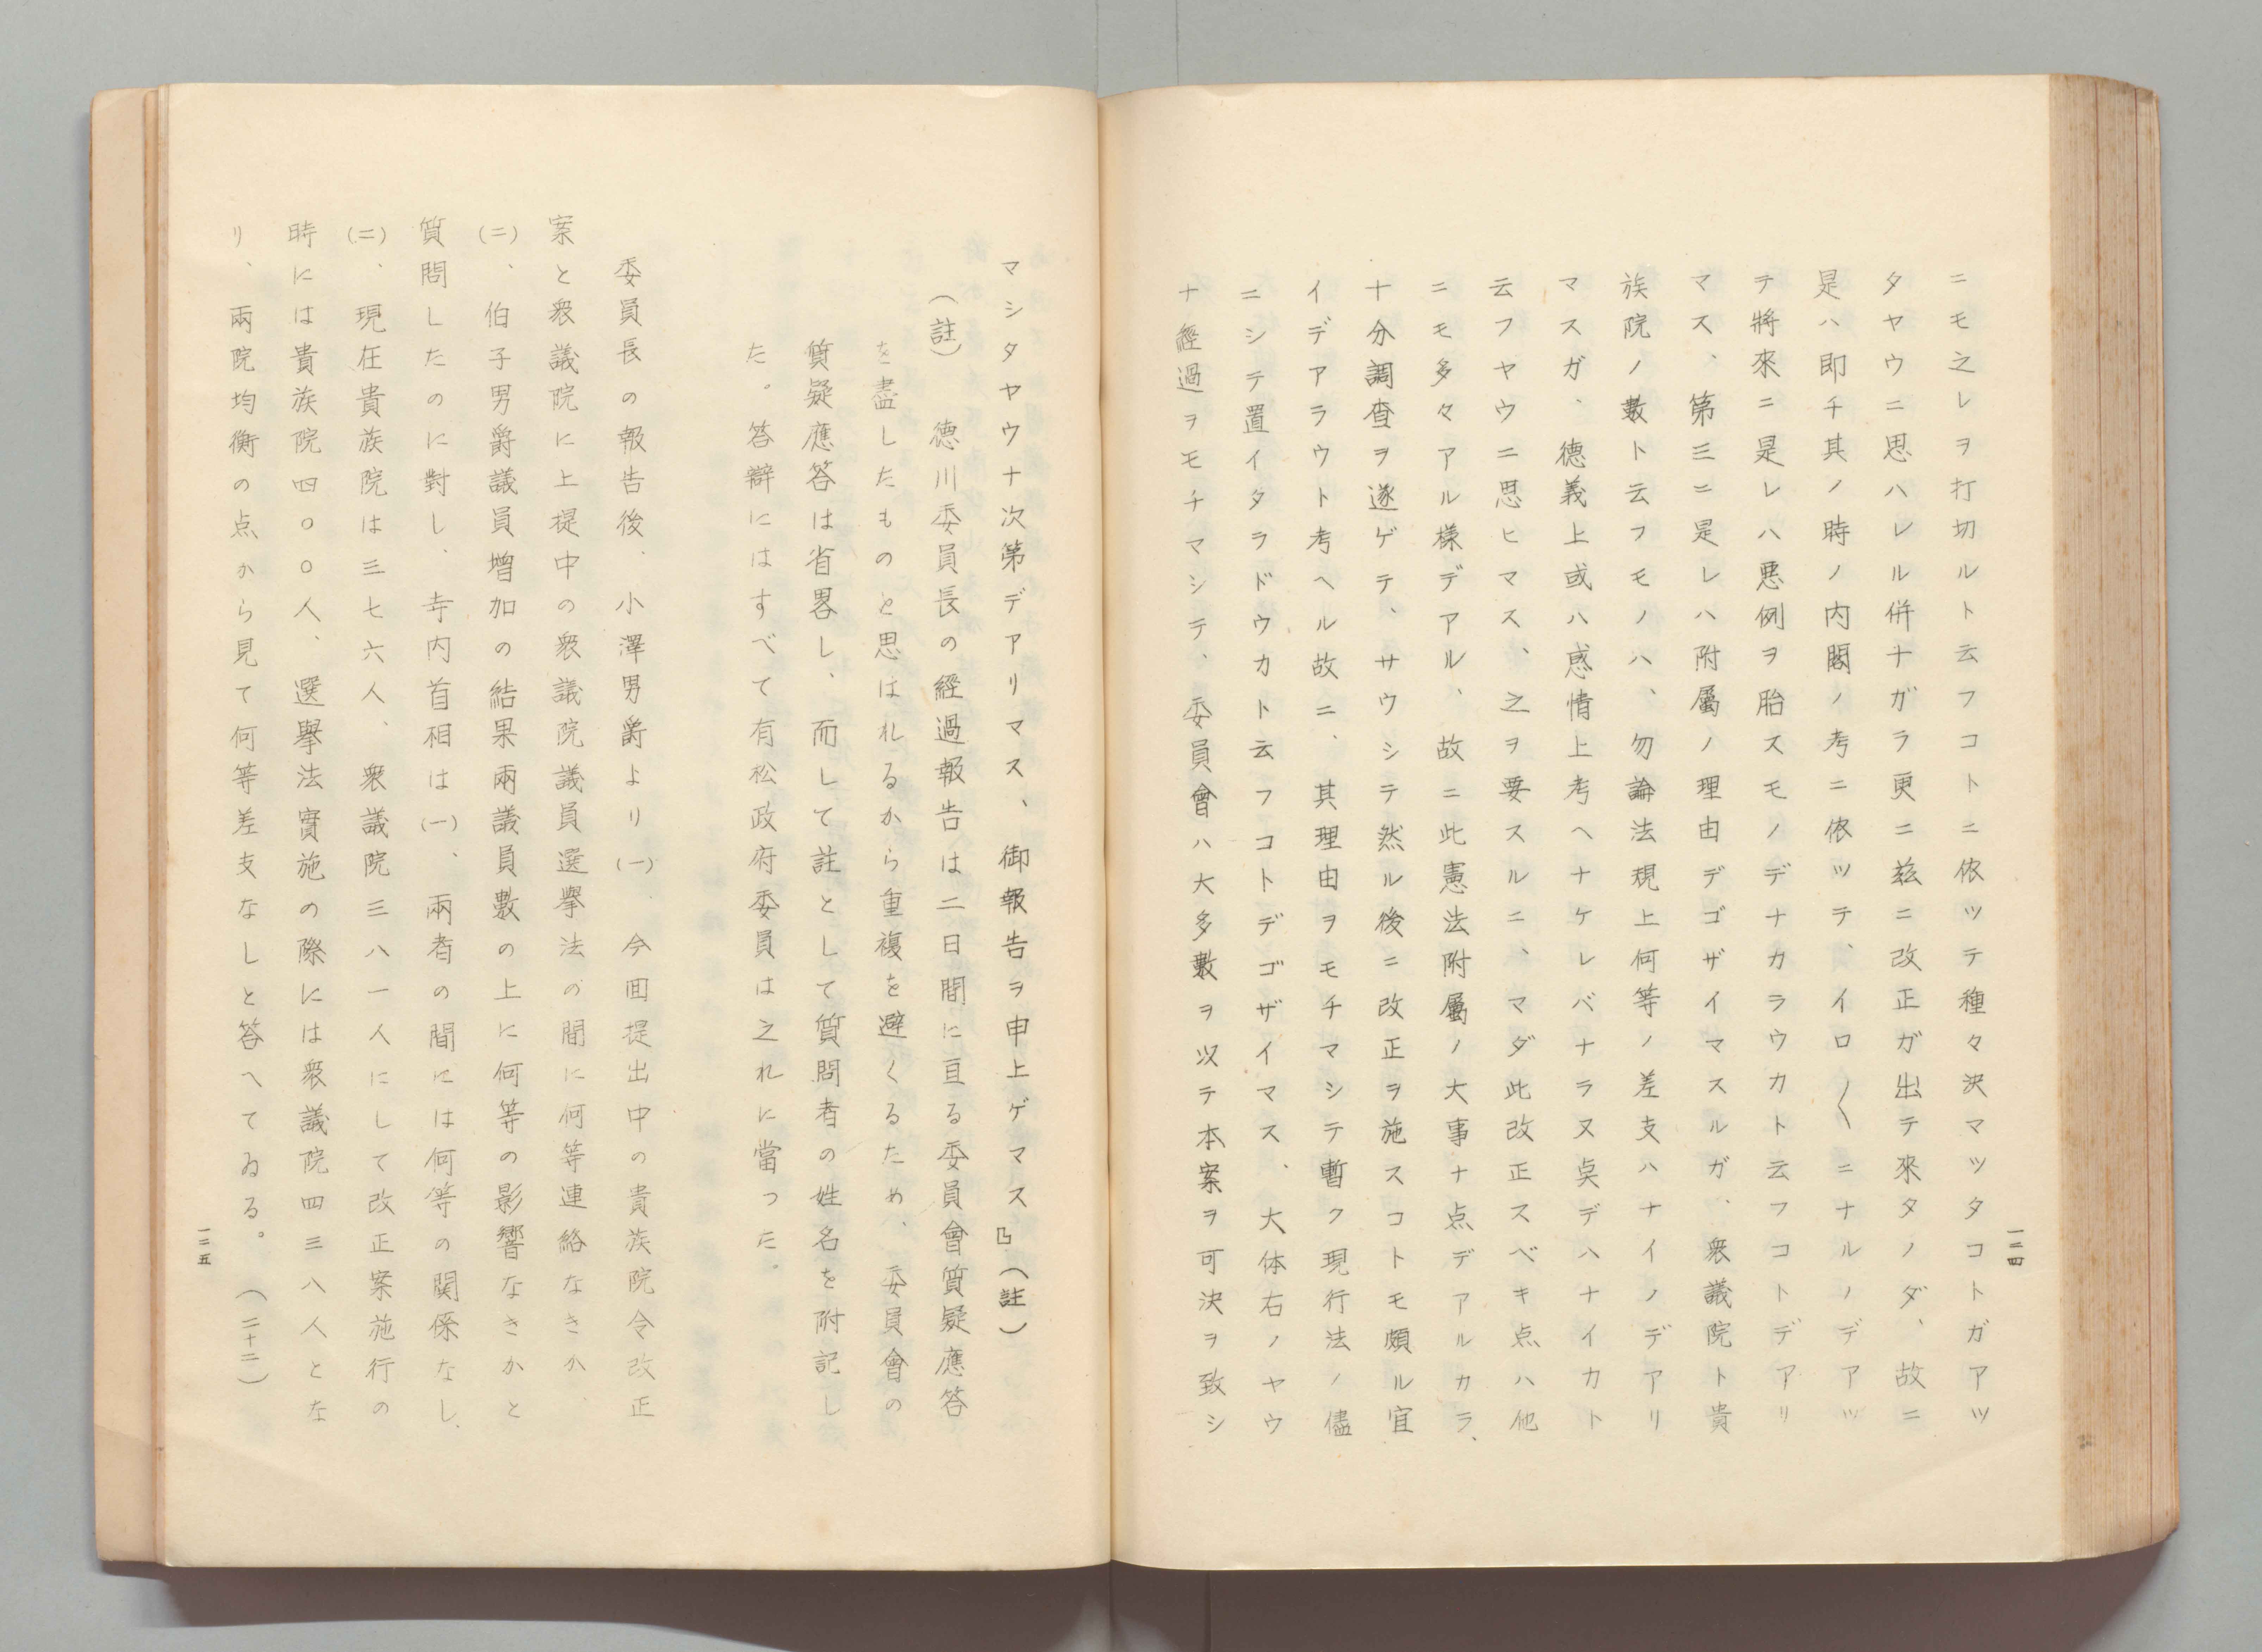 一二四
ニモ之レヲ打切ルト云フコトニ依ツテ種々決マツタコトガアツ
タヤウニ思ハレル併ナガラ更ニ茲ニ改正ガ出テ來タノダ、故ニ
是ハ即チ其ノ時ノ内閣ノ考ニ依ツテ、イロ〱ニナルノデアツ
テ將來ニ是レハ悪例ヲ胎スモノデナカラウカト云フコトデアリ
マス、第三ニ是レハ附屬ノ理由デゴザイマスルガ、衆議院ト貴
族院ノ數ト云フモノハ、勿論法規上何等ノ差支ハナイノデアリ
マスガ、德義上或ハ感情上考ヘナケレバナラヌ奌デハナイカト
云フヤウニ思ヒマス、之ヲ要スルニ、マダ此改正スベキ点ハ他
ニモ多々アル様デアル、故ニ此憲法附屬ノ大事ナ点デアルカラ、
十分調査ヲ遂ゲテ、サウシテ然ル後ニ改正ヲ施スコトモ頗ル宜
イデアラウト考ヘル故ニ、其理由ヲモチマシテ暫ク現行法ノ儘
ニシテ置イタラドウカト云フコトデゴザイマス、大体右ノヤウ
ナ經過ヲモチマシテ、委員會ハ大多數ヲ以テ本案ヲ可決ヲ致シ
マシタヤウナ次第デアリマス、御報告ヲ申上ゲマス』(註)
(註) 德川委員長の經過報告は二日間に亘る委員會質疑應答
を盡したものと思はれるから重複を避くるため、委員會の
質疑應答は省畧し、而して註として質問者の姓名を附記し
た。答辯にはすべて有松政府委員は之れに當った。
委員長の報告後、小澤男爵より(一)、今回提出中の貴族院令改正
案と衆議院に上提中の衆議院議員選擧法の間に何等連絡なきか
(二)、伯子男爵議員增加の結果兩議員數の上に何等の影響なきかと
質問したのに對し、寺内首相は(一)、兩者の間には何等の関係なし、
(二)、現在貴族院は三七六人、衆議院三八一人にして改正案施行の
時には貴族院四〇〇人、選擧法實施の際には衆議院四三八人とな
り、兩院均衡の点から見て何等差支なしと答へてゐる。(二十二)
一二五